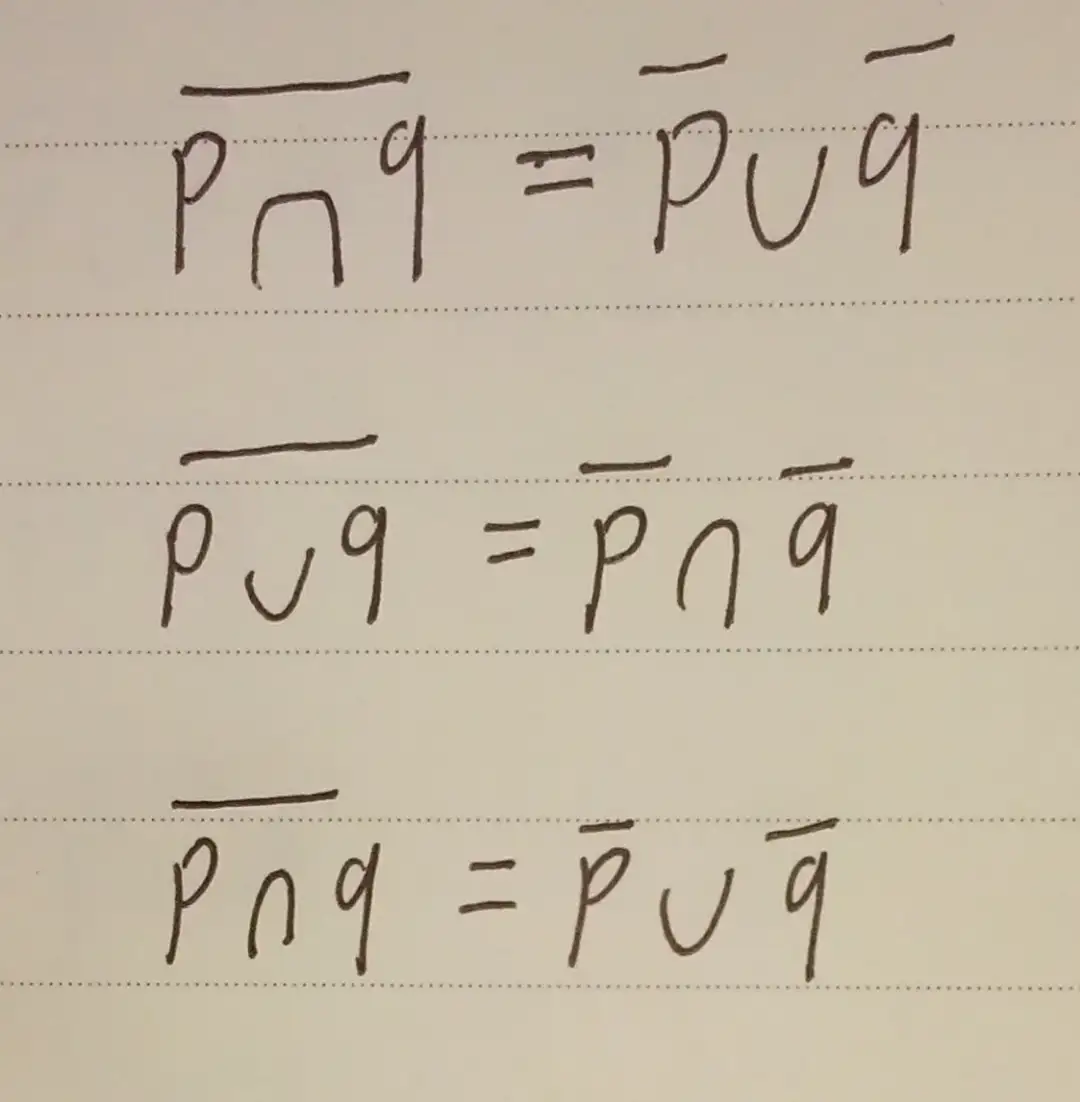 p̅ ̅∩̅ ̅q̅ = p̅ ∪ q̅
p̅ ̅∪̅ ̅q̅ = p̅ ∩ q̅
p̅ ̅∩̅ ̅q̅ = p̅ ∪ q̅